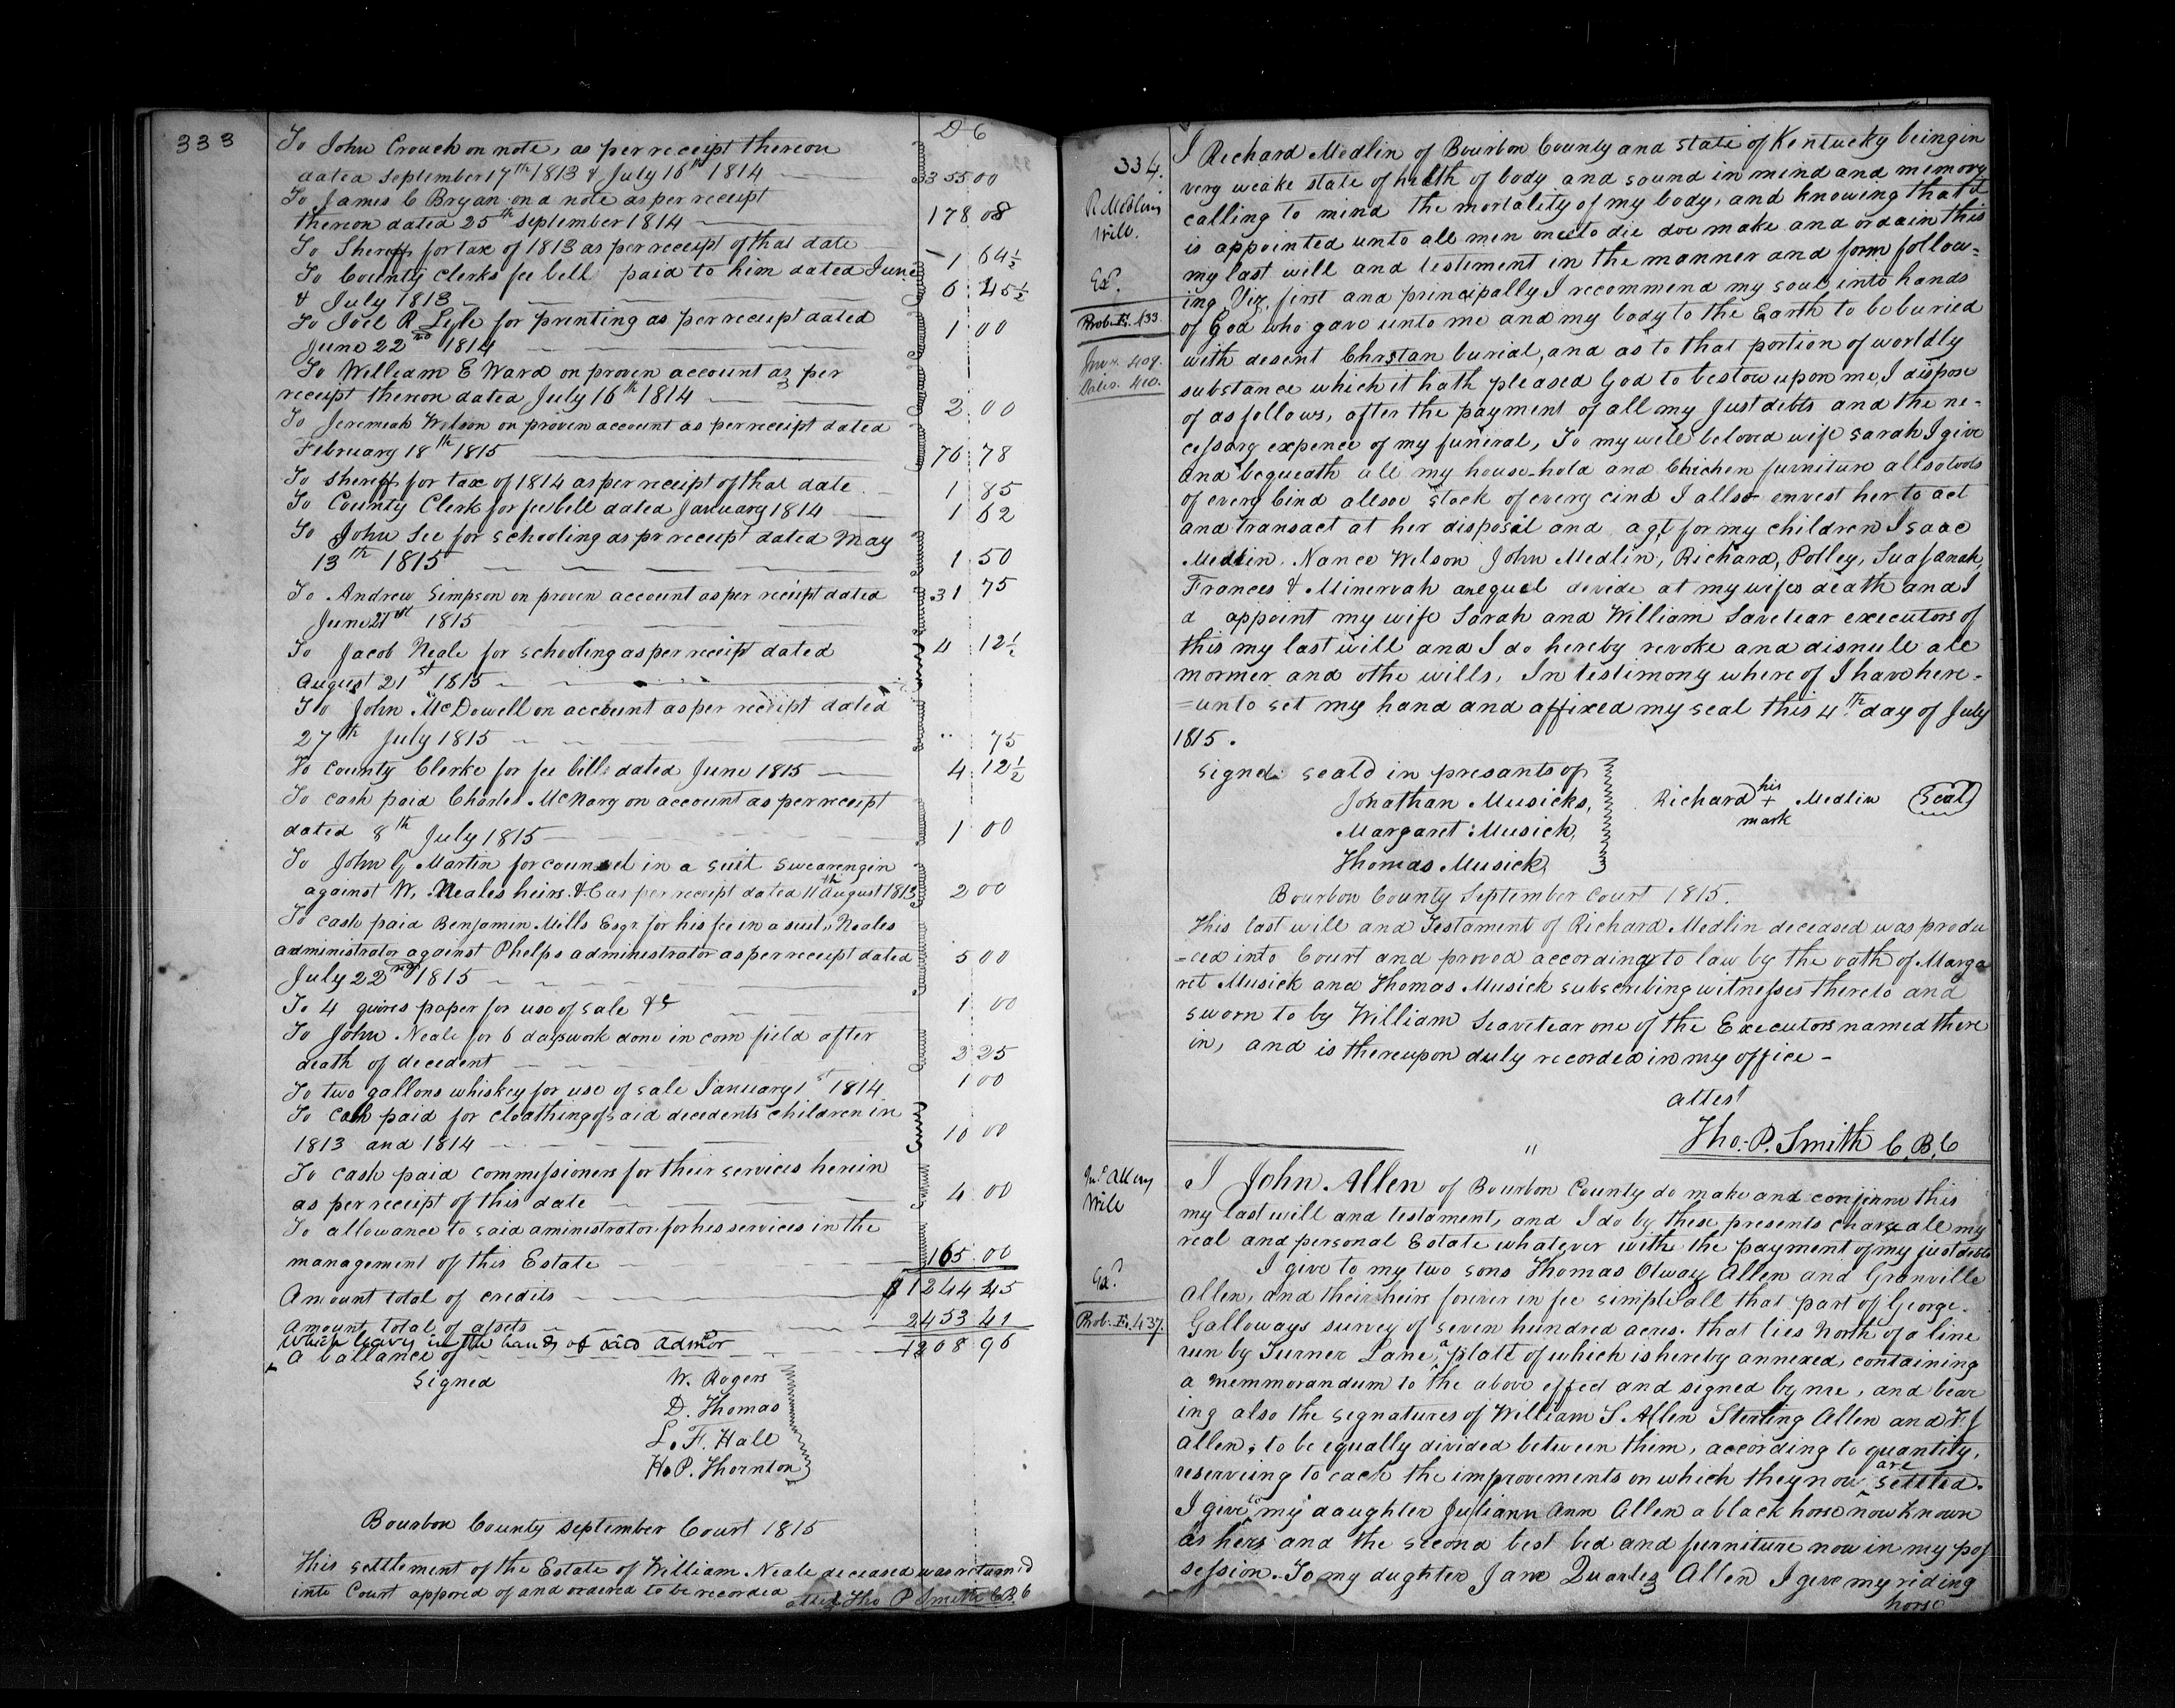 333
D C
To John Crouch on note, as per receipt thereon
dated September 17th 1813 & July 16th 1814 3355 00
To James C Bryan on a note as per receipt
thereon dated 25th September 1814 178 08
To Sheriff for tax of 1813 as per receipt of that date 1 64½
To County Clerks fee bill paid to him dated June
& July 1813 6 45½
To Joel R Lyle for printing as per receipt dated
June 22nd 1814 1 00
To William E Ward on proven account as per
receipt thereon dated July 16th 1814 2 00
To Jeremeah Wilson on proven account as per receipt dated
February 18th 1815 76 78
To Sheriff for tax of 1814 as per receipt of that date 1 85
To County Clerk for fee bill dated January 1814 1 62
To John See for schooling as pr receipt dated May
13th 1815 1 50
To Andrew Simpson on proven account as per receipt dated 31 75
June 21st 1815
To Jacob Neale for schooling as per receipt dated 4 12½
August 21st 1815
To John McDowell on account as per receipt dated
27th July 1815 " 75
To County Clerke for fee bill dated June 1815 4 12½
To cash paid Charles McNary on account as per receipt
dated 8th July 1815 1 00
To John G Martin for counsel in a suit Swearengin
against W. Neales heirs &C as per receipt dated 11th August 1813 2 00
To cash paid Benjamin Mills Esqr. for his fee in a suit, Neales
administrator against Phelps administrator as per receipt dated 5 00
July 22nd 1815
To 4 quires paper for use of sale &c 1 00
To John Neale for 6 days work done in corn field after
death of decedent 2 25
To two gallons whiskey for use of sale January 1st 1814 1 00
To cash paid for cloathing of said decedents children in
1813 and 1814 10 00
To cash paid commissioners for their services herein
as per receipt of this date 4 00
To allowance to said aministrator for his services in the
management of this Estate 165.00
Amount total of credits $1244 45
Amount total of assets 2453 41
Which leaves in the hands of said Admor
A ballance of 1208 96
Signed W. Rogers
D. Thomas
L. F. Hall
H. P. Thornton
Bourbon County September Court 1815
This settlement of the Estate of William Neale deceased was returned
into Court appored of and ordered to be recorded
attest Tho P Smith C.B.C
334.
R Medlins
Will.
Ex?
Prob. E. 433
Inv. 409.
410.
I Richard Medlin of Bourbon County and state of Kentucky being in
very weake state of helth of body and sound in mind and memory
calling to mind the mortality of my body, and knowing that it
is appointed unto all men once to die doe make and ordain this
my last will and testiment in the manner and form follow=
ing Viz. first and principally I recommend my soul into hands
of God who gave unto me and my body to the Earth to be buried
with desent Chrstan burial, and as to that portion of worldly
substance which it hath pleased God to bestow upon me, I dispose
of as follows, after the payment of all my Just debts and the ne-
cessary expence of my funeral, To my well beloved wife Sarah I give
and bequeath all my house-hold and Chichen furniture allso tools
of every Cind allsoe stock of every cind I allso envest her to act
and transact at her disposil and agt for my children Isaac
Medlin, Nance Wilson John Medlin, Richard, Polley, Suasanah,
Frances & Minervah an equel devide at my wifes death and I
d appoint my wife Sarah and William Savetear executors of
this my last will and I do hereby revoke and disnull all
mormer and othe wills, In testimony where of I have here-
=unto set my hand and affixed my seal this 4th day of July
1815.
Signed seald in presants of
Jonathan Musicks,
Margaret Musick,
Thomas Musick
Richard his + mark Medlin Seal
Bourbon County September Court 1815.
This last will and Testament of Richard Medlin deceased was produ
=ced into Court and proved according to law by the oath of Marga
ret Musick and Thomas Musick subscribing witnesses thereto and
sworn to by William Seavetear one of the Executors named there
in, and is thereupon duly recorded in my office -
attest
Tho: P. Smith C.B.C
Jno Allens
Will
Ex?
Prob. E. 437
I John Allen of Bourbon County do make and confirm this
my last will and testament, and I do by these presents charge all my
real and personal Estate whatever with the payment of my just debts
I give to my two sons Thomas Olway Allen and Granville
Allen, and their heirs forever in fee simple all that part of George
Galloways survey of seven hundred acres. that lies North of a line
run by Turner Lane, a platt of which is hereby annexed, containing
a memmorandum to the above effect and signed by me, and bear
ing also the signatures of William S. Allen Sterling Allen and T. J
Allen, to be equally divided between them, according to quantity,
reserviing to each the improvements on which they now are settled.
I give to my daughter Juliann Ann Allen a black horse now known
as hers and the second best bed and furniture now in my pos
session. To my dughter Jane Quarles Allen I give my riding
horse